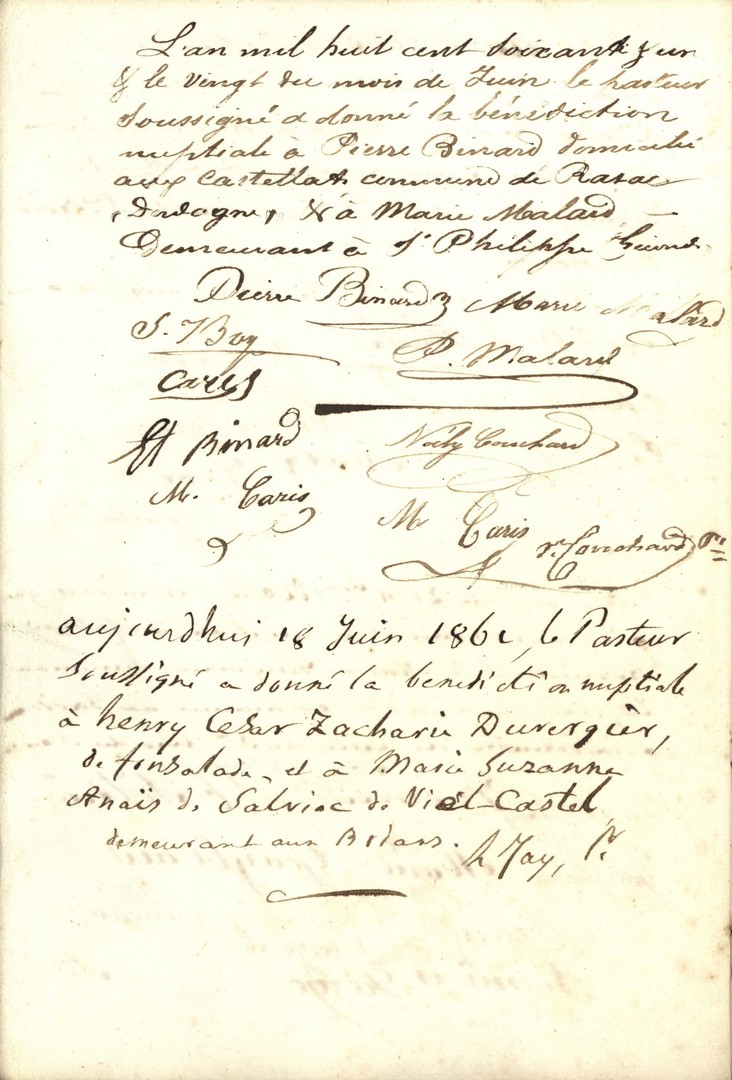 L'an mil huit cent soixante & un
& le vingt du mois de Juin le pasteur
Soussigné a donné la bénédiction
nuptiale à Pierre Binard domicilié
aux Castellats commune de Razac
Dordogne, & à Marie Malard
Demeurant à St Philippe Gironde
Pierre Binard Marie Malard
S. Boy P. Malard
Et Binard Couchard
M. Caris
M Caris Couchard Pr
aujourdhui 18 Juin 1861, le Pasteur
Soussigné a donné la bénédiction nuptiale
à henry Cesar Zacharie Duvergier,
de , et à Marie Suzanne
Anaïs de Salviac de Viel-Castel
demeurant aux Bridars. Jay, Pr